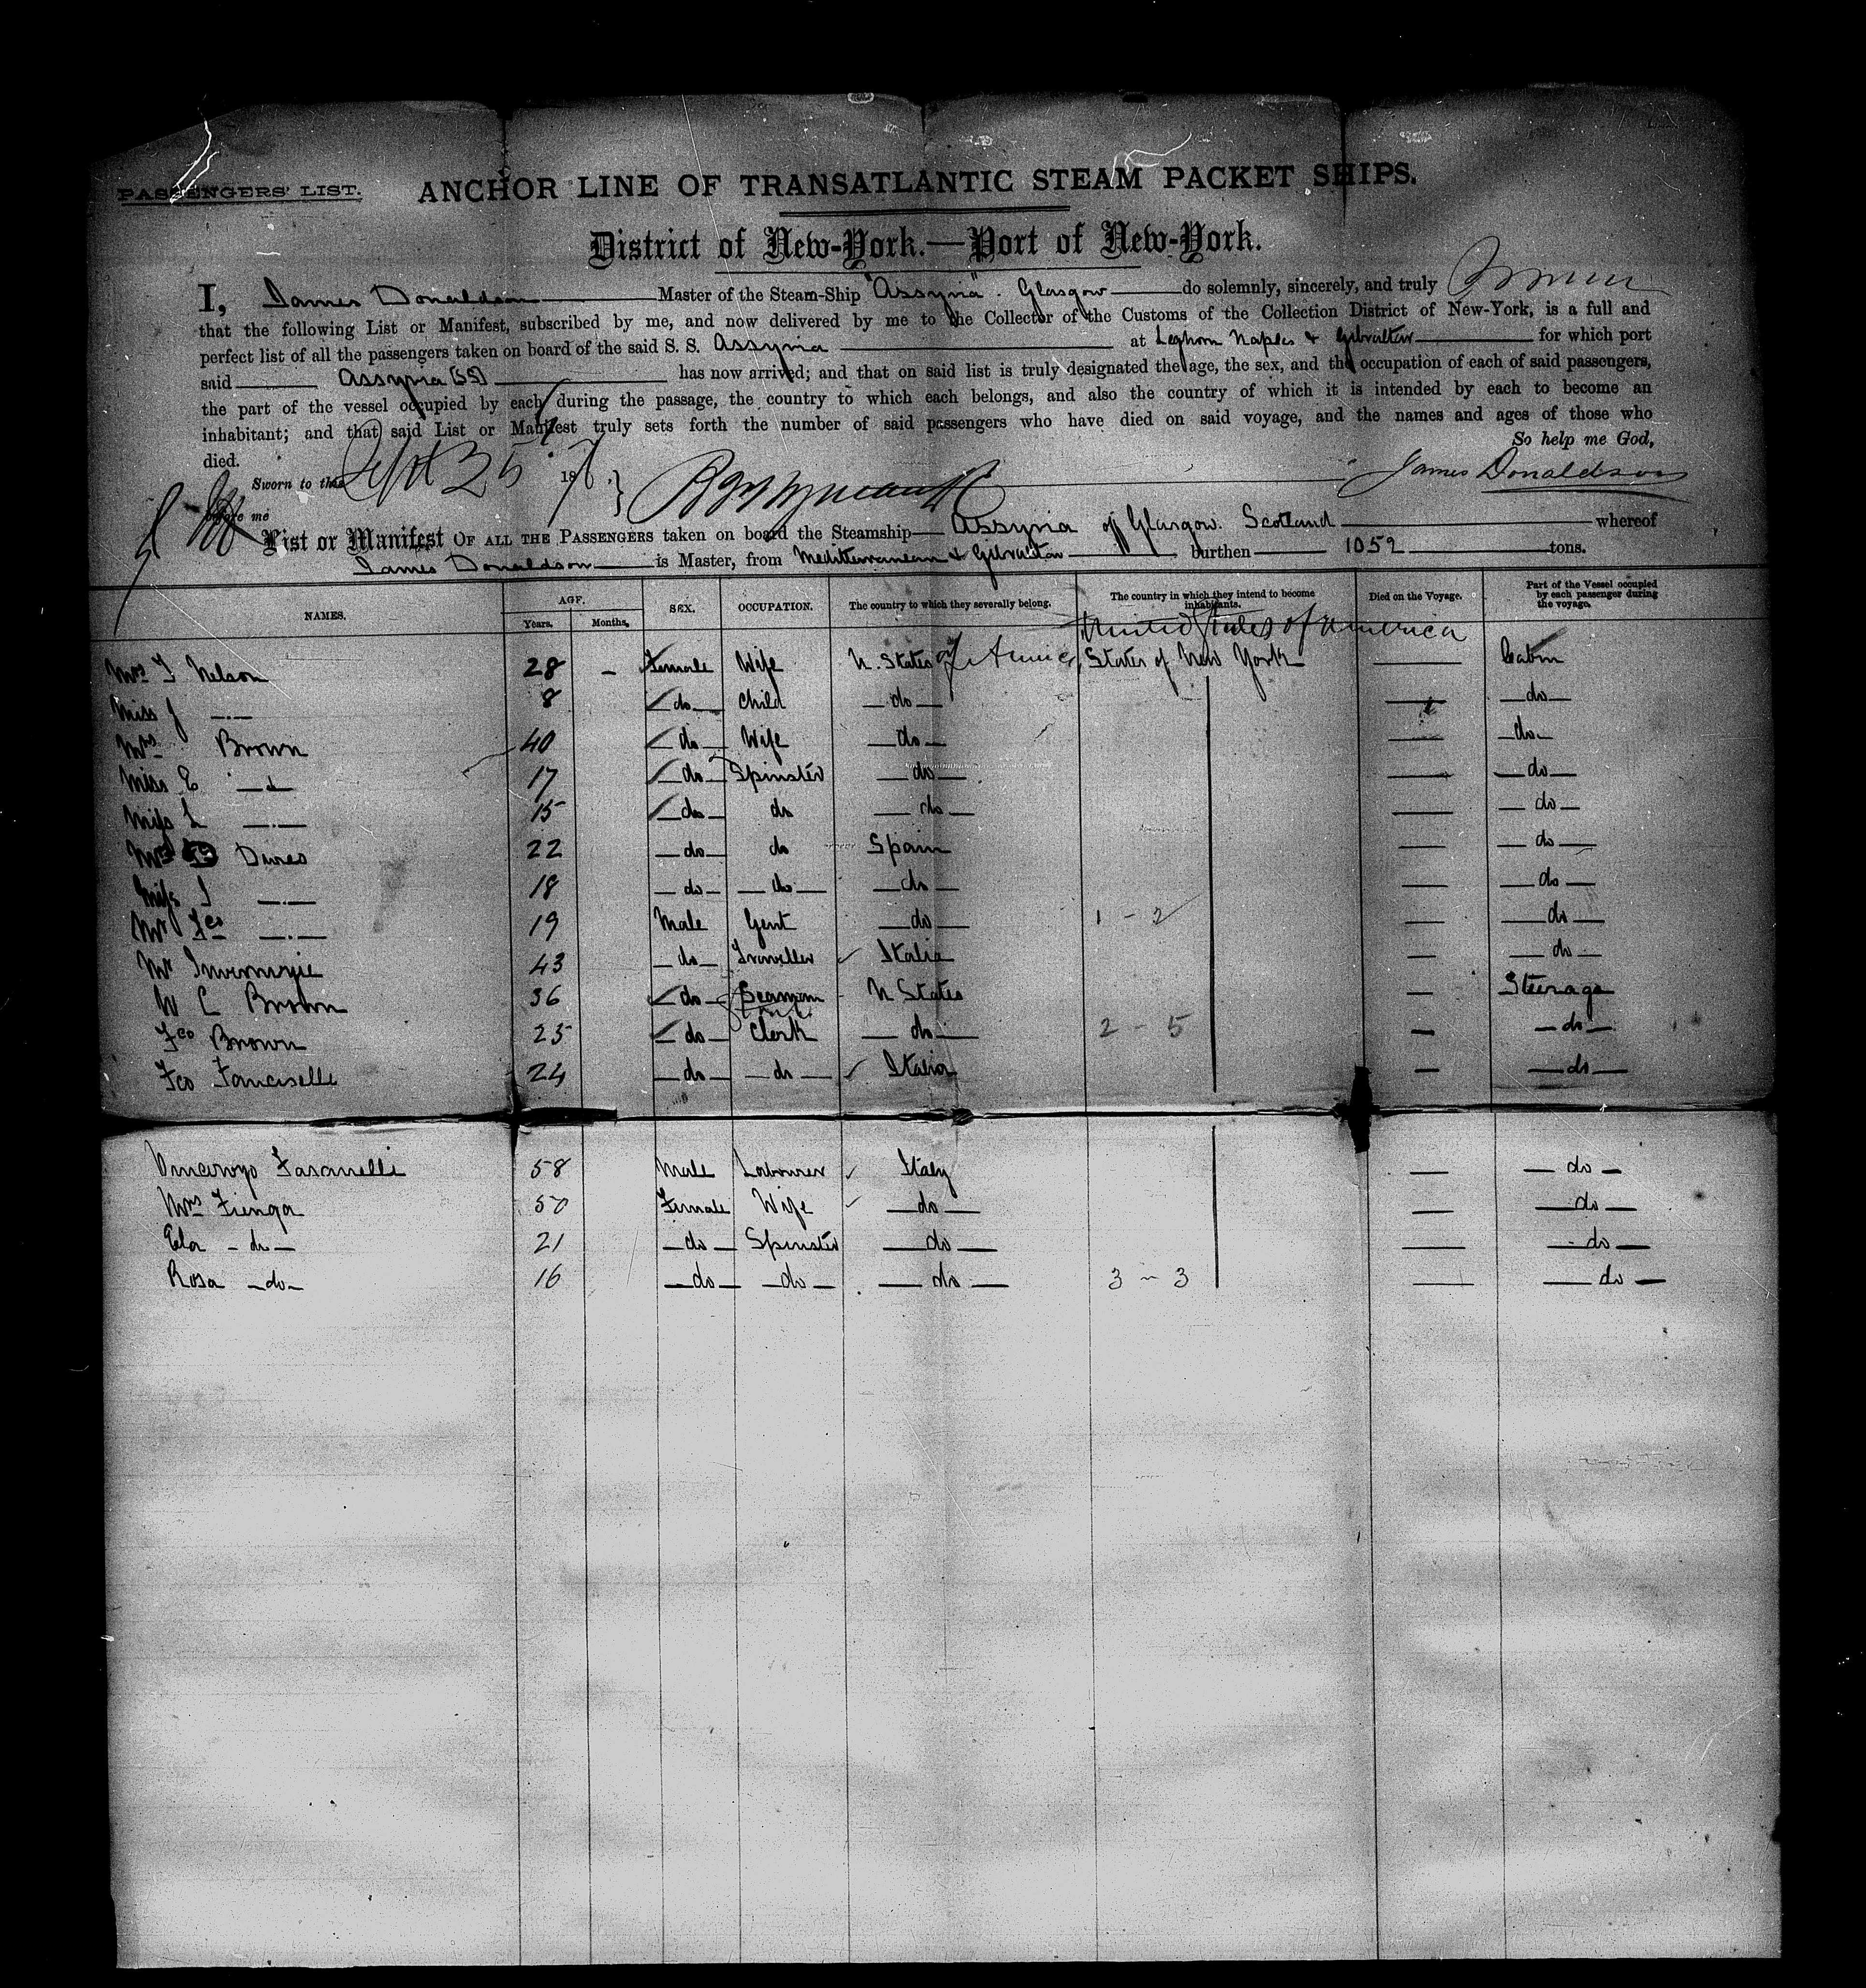 PASSENGERS' LIST. ANCHOR LINE OF TRANSATLANTIC STEAM PACKET SHIPS.
District of New-York.—Port of New-York.
I, James Donaldson Master of the Steam-Ship "Assyria". Glasgow do solemnly, sincerely, and truly
that the following List or Manifest, subscribed by me, and now delivered by me to the Collector of the Customs of the Collection District of New-York, is a full and
perfect list of all the passengers taken on board of the said S. S. Assyria at Leghorn Naples & Gibraltar for which port
said Assyria (SS) has now arrived; and that on said list is truly designated the age, the sex, and the occupation of each of said passengers,
the part of the vessel occupied by each during the passage, the country to which each belongs, and also the country of which it is intended by each to become an
inhabitant; and that said List or Manifest truly sets forth the number of said passengers who have died on said voyage, and the names and ages of those who
died. So help me God,
Sworn to this Sept 25 187 James Donaldson
before me
List or Manifest OF ALL THE PASSENGERS taken on board the Steamship Assyria of Glasgow. Scotland whereof
James Donaldson is Master, from Mediterranean & Gibraltar burthen 1052 tons.
NAMES. AGE. Years. Months. SEX. OCCUPATION. The country to which they severally belong. The country in which they intend to become inhabitants. Died on the Voyage. Part of the Vessel occupied by each passenger during the voyage.
United States of America
Mrs J Nelson 28 - Female Wife U. States of Americ States of New York — Cabin
Miss J —.— 8 do Child do — do
Mrs Brown 40 do Wife do — do
Miss E —.— 17 do Spinster do — do
Miss L —.— 15 do do do — do
Mrs Dines 22 do do Spain — do
Miss J —.— 18 do do do — do
Mr Fco —.— 19 Male Gent do 1 - 2 — do
Mr 43 do Traveller Italia — do
W C Brown 36 do Seaman U States — Steerage
Fco Brown 25 do Clerk do 2 - 5 — do
Fco Fanciselli 24 do do Italia — do
Fasanelli 58 Male Labourer Italy — do
Mrs Fienga 50 Female Wife do — do
Ela do 21 do Spinster do — do
Rosa do 16 do do do 3 - 3 — do